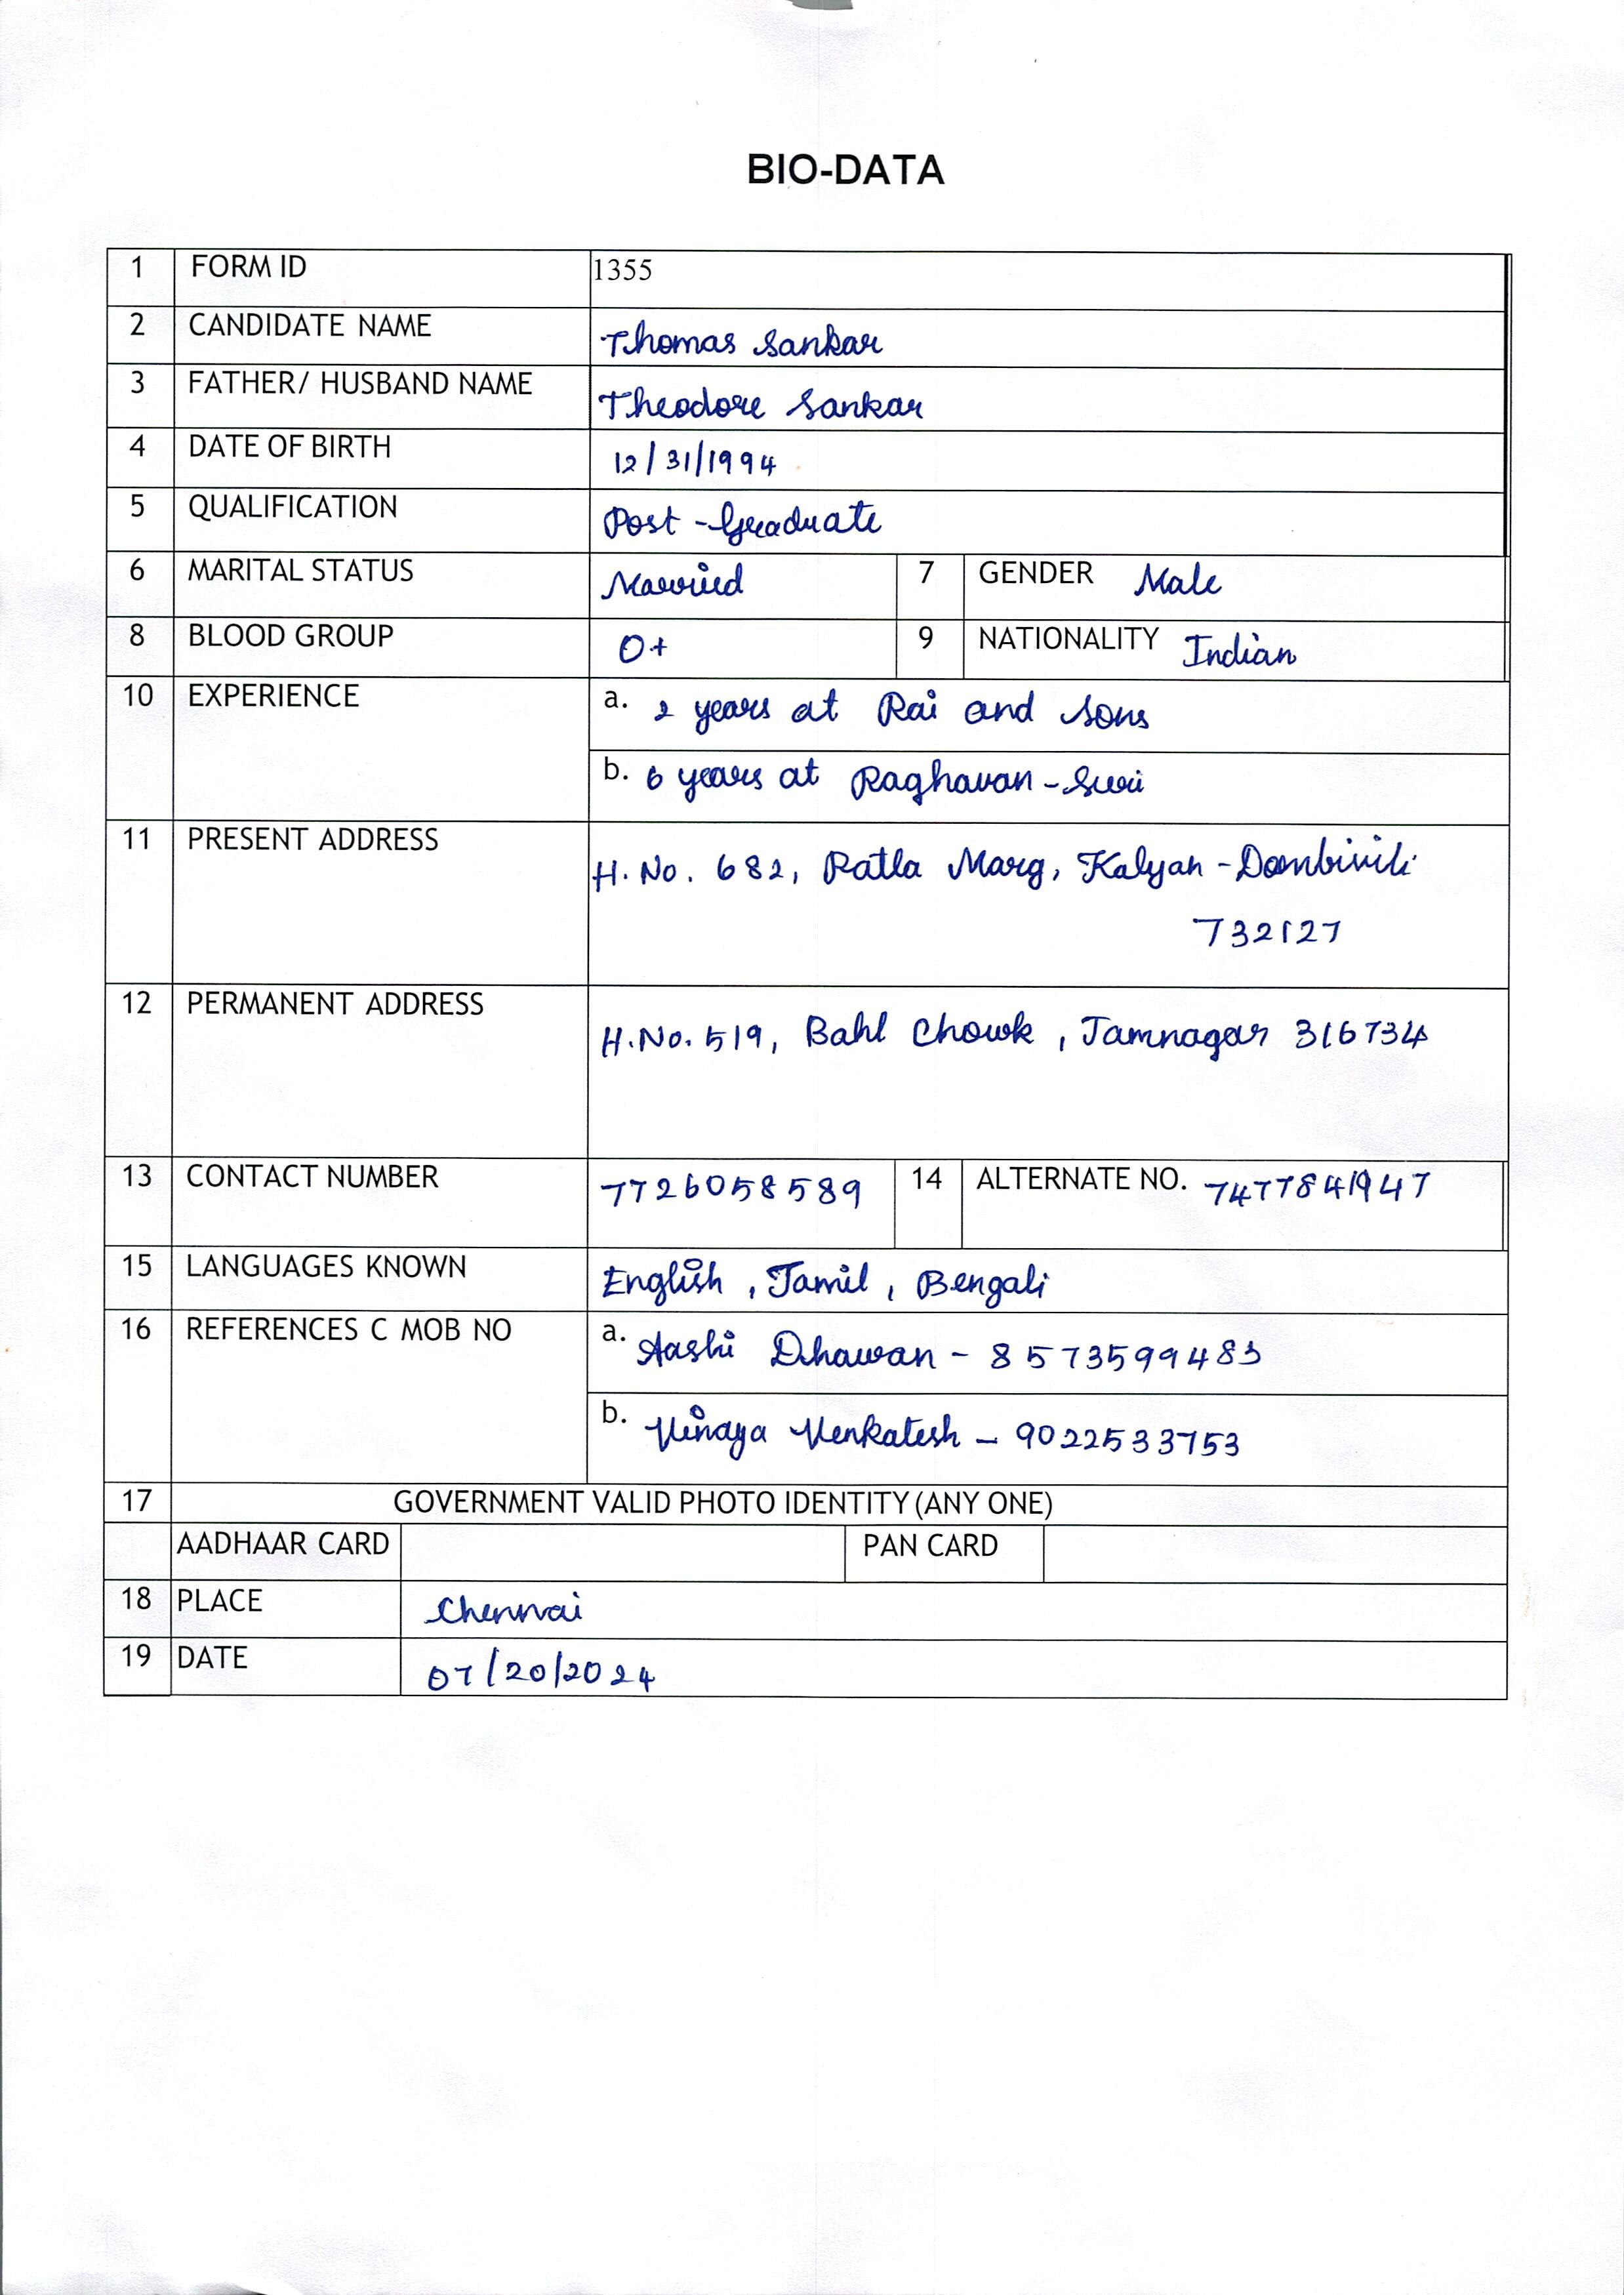 BIO-DATA
1 FORM ID 1355
2 CANDIDATE NAME Thomas Sankar
3 FATHER/ HUSBAND NAME Theodore Sankar
4 DATE OF BIRTH 12/31/1994
5 QUALIFICATION Post-Graduate
6 MARITAL STATUS Married 7 GENDER Male
8 BLOOD GROUP O+ 9 NATIONALITY Indian
10 EXPERIENCE a. 2 years at Rai and Sons
b. 6 years at Raghavan-Suri
11 PRESENT ADDRESS H.No. 682, Ratla Marg, Kalyan-Dombivili
732127
12 PERMANENT ADDRESS H.No. 519, Bahl Chowk, Jamnagar 316734
13 CONTACT NUMBER 7726058589 14 ALTERNATE NO. 7477841947
15 LANGUAGES KNOWN English, Tamil, Bengali
16 REFERENCES C MOB NO a. Aashi Dhawan - 8573599483
b. Vinaya Venkatesh - 9022533753
17 GOVERNMENT VALID PHOTO IDENTITY (ANY ONE)
AADHAAR CARD PAN CARD
18 PLACE Chennai
19 DATE 07/20/2024